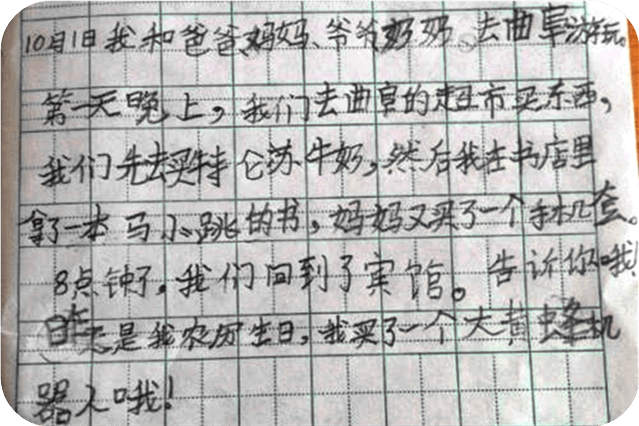 10月1日我和爸爸、妈妈、爷爷奶奶、去曲阜游玩。
第一天晚上，我们去曲阜的超市买东西，
我们先去买特仑苏牛奶，然后我在书店里
拿了一本马小跳的书，妈妈又买了一个手机套。
8点钟了，我们回到了宾馆。告诉你哦！
昨天是我农历生日，我买了一个大黄蜂机
器人哦！